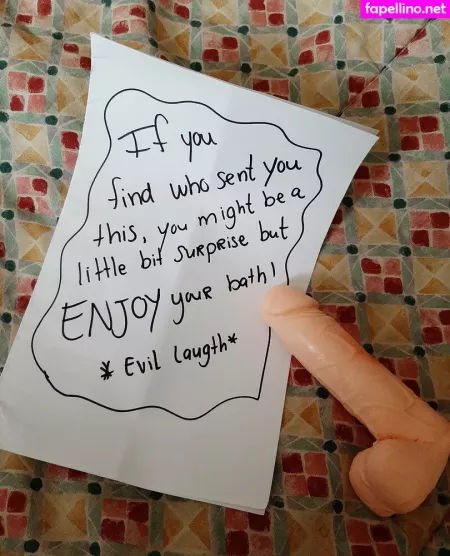 fapellino.net
If you
find who sent you
this, you might be a
little bit surprise but
ENJOY your bath!
* Evil laugth*